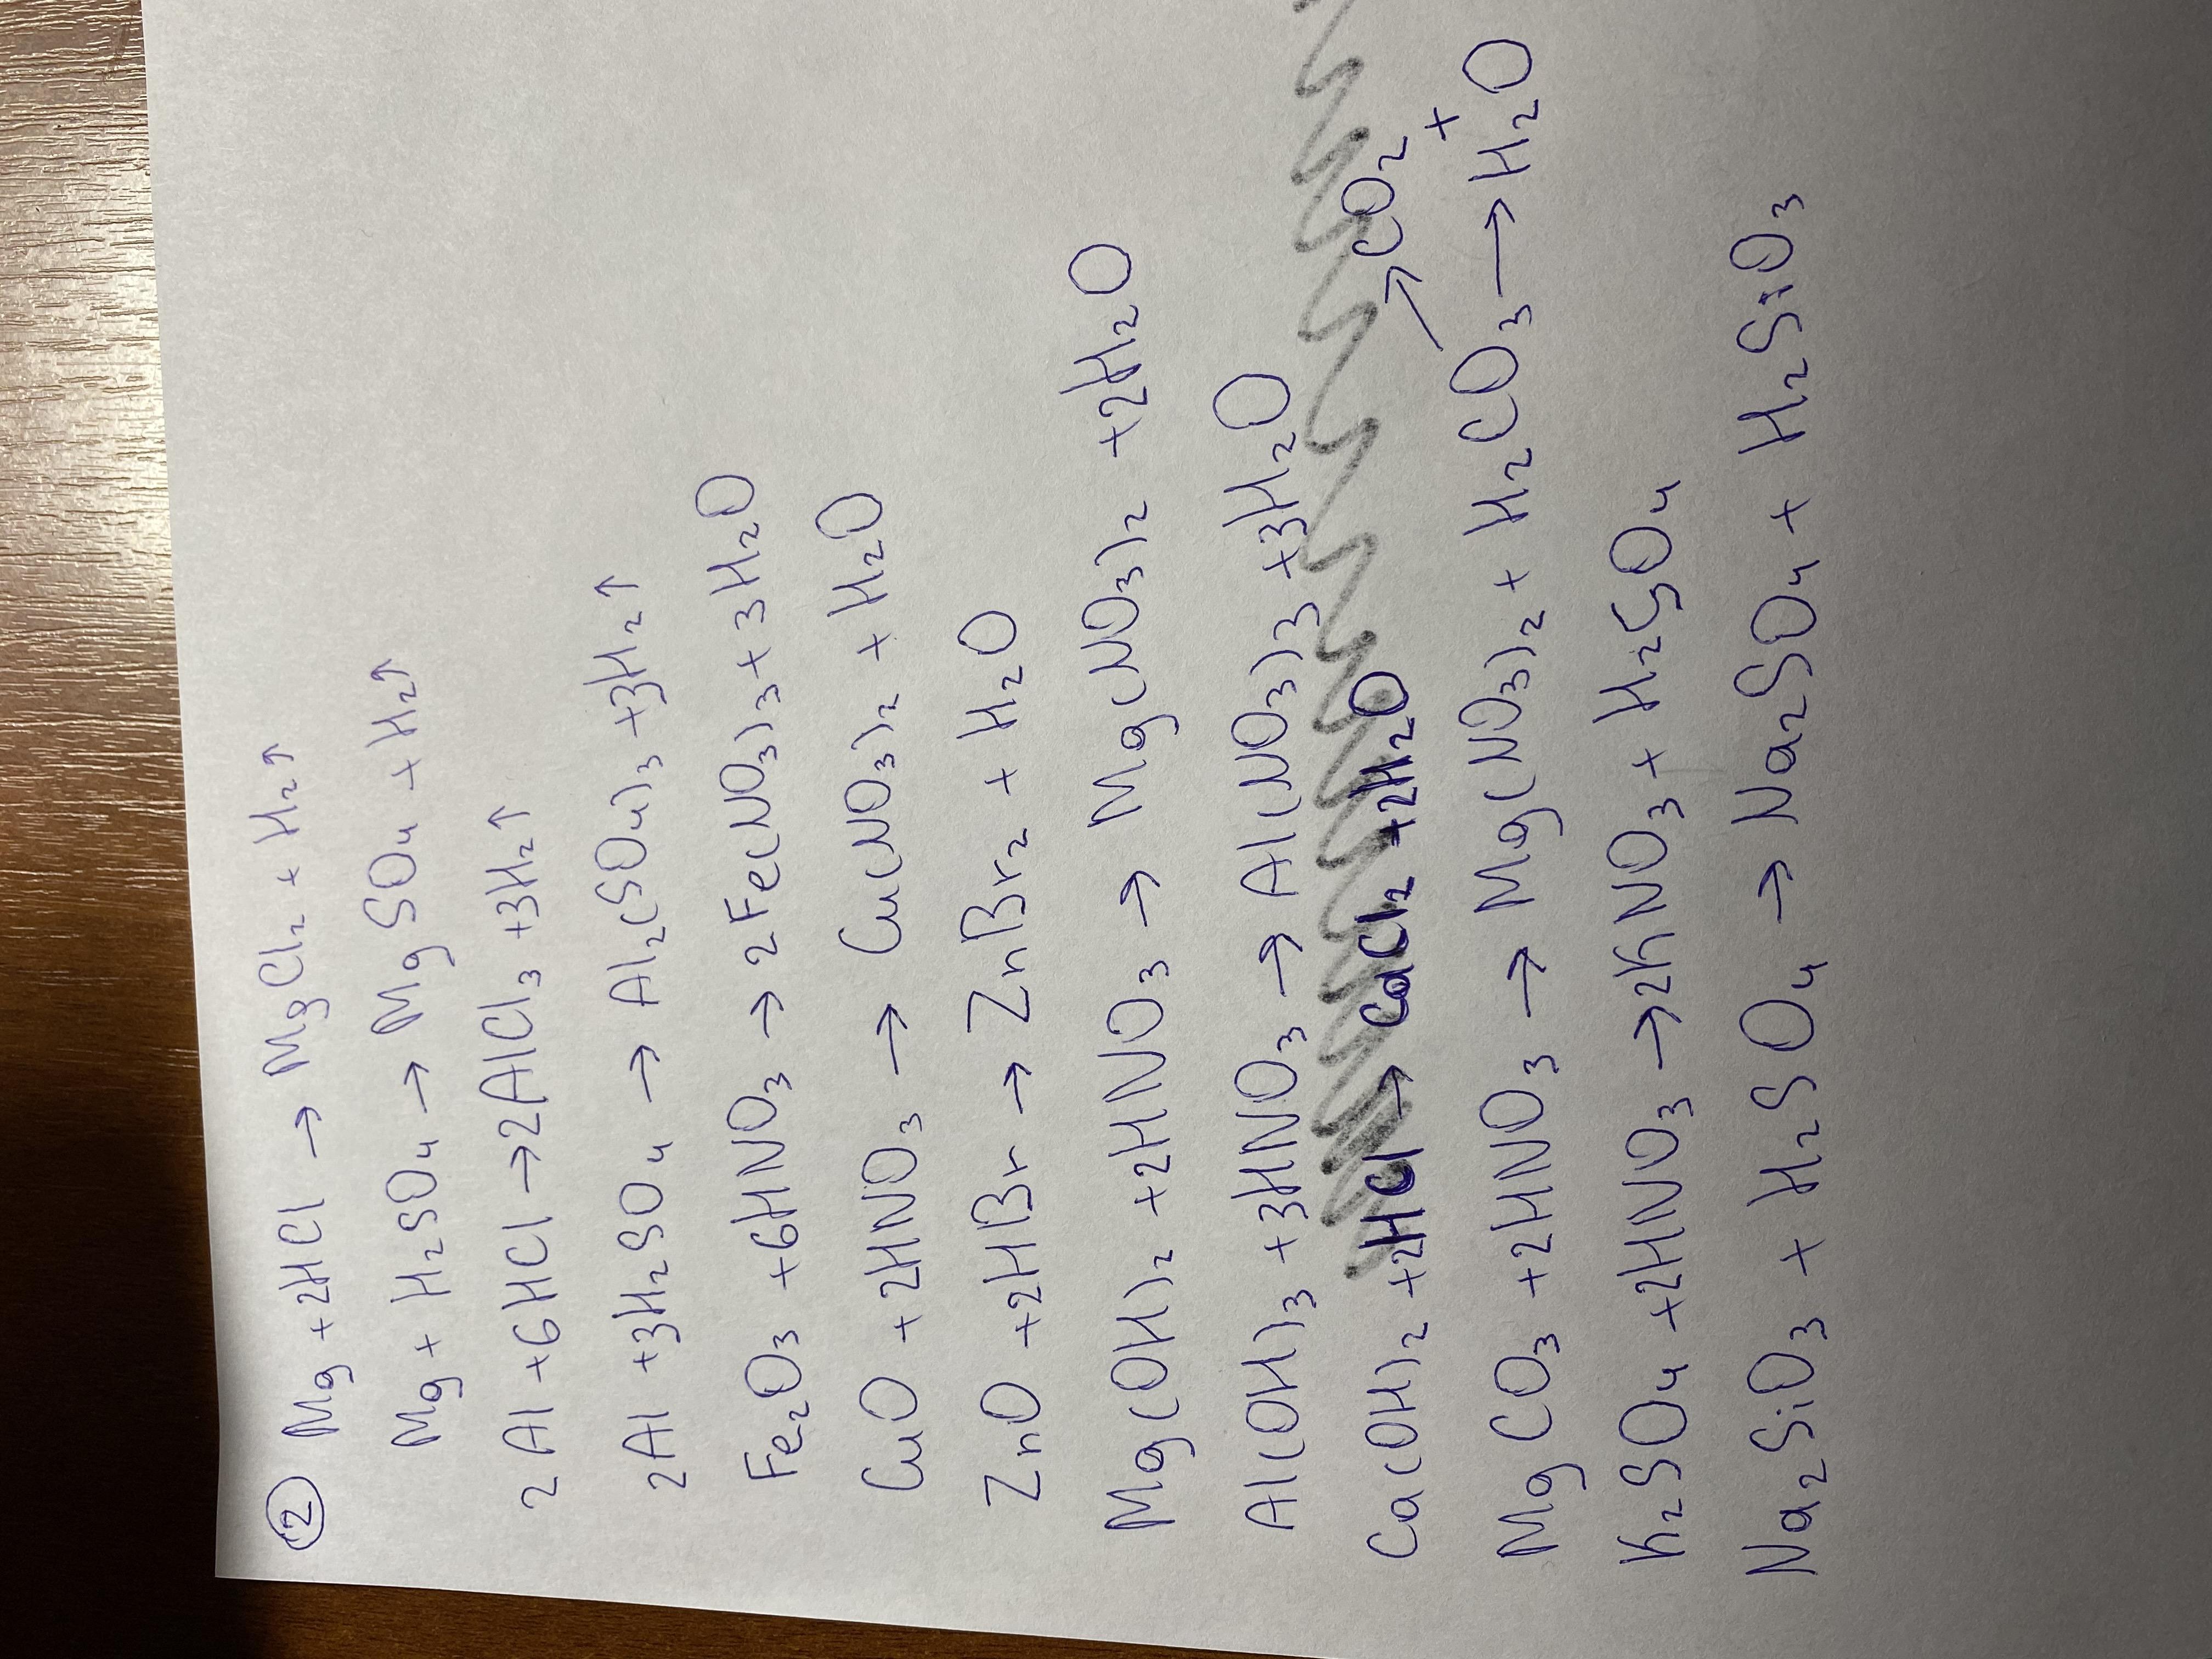 ② Mg + 2HCl → MgCl₂ + H₂↑
Mg + H₂SO₄ → MgSO₄ + H₂↑
2Al + 6HCl → 2AlCl₃ + 3H₂↑
2Al + 3H₂SO₄ → Al₂(SO₄)₃ + 3H₂↑
Fe₂O₃ + 6HNO₃ → 2Fe(NO₃)₃ + 3H₂O
CuO + 2HNO₃ → Cu(NO₃)₂ + H₂O
ZnO + 2HBr → ZnBr₂ + H₂O
Mg(OH)₂ + 2HNO₃ → Mg(NO₃)₂ + 2H₂O
Al(OH)₃ + 3HNO₃ → Al(NO₃)₃ + 3H₂O
Ca(OH)₂ + 2HCl → CaCl₂ + 2H₂O
MgCO₃ + 2HNO₃ → Mg(NO₃)₂ + H₂CO₃ → CO₂ + → H₂O
K₂SO₄ + 2HNO₃ → 2KNO₃ + H₂SO₄
Na₂SiO₃ + H₂SO₄ → Na₂SO₄ + H₂SiO₃